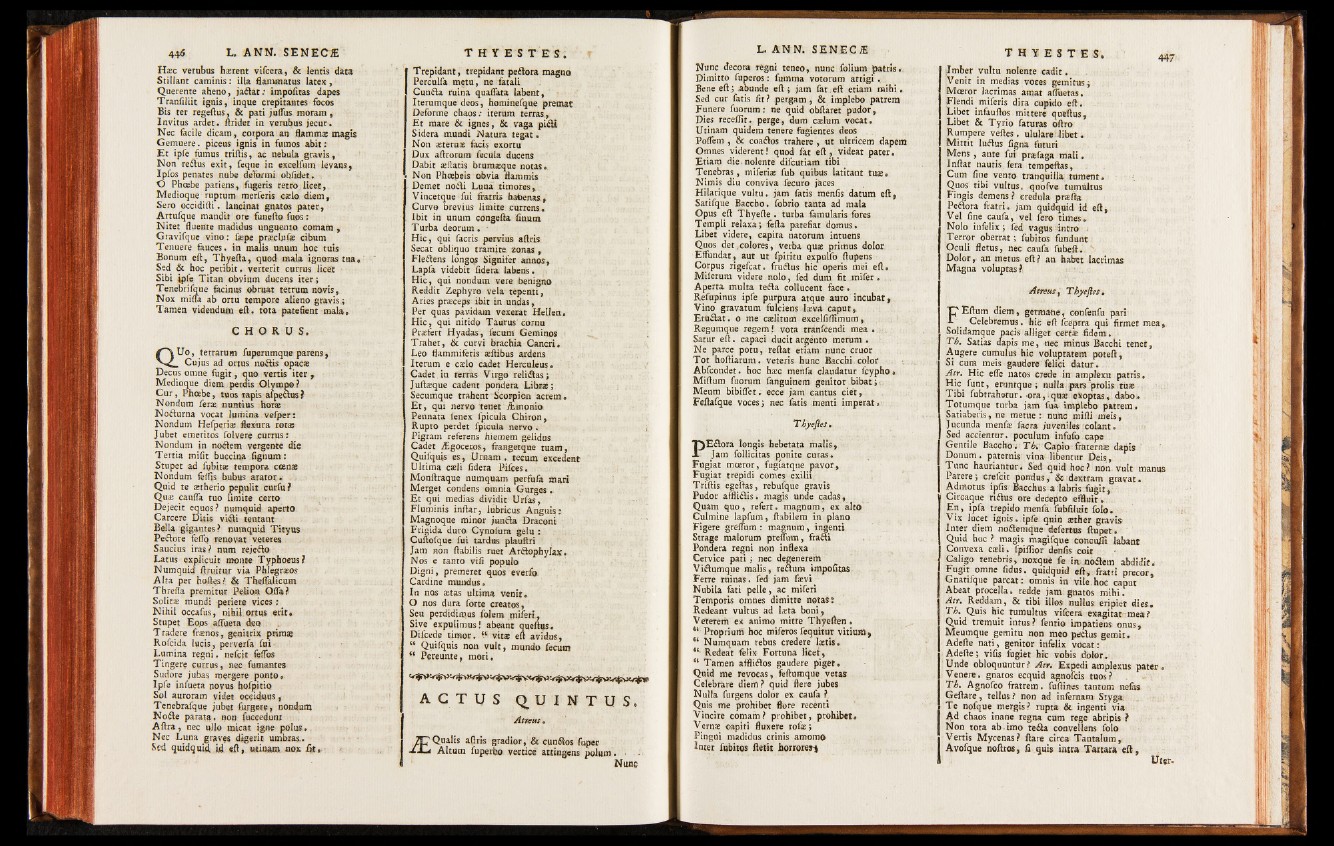 446 L. ANN. SENECÆ
Hæc verubus hærent viſcera, & lentis data
Stillant caminis: illa flammatus latex,
Querente aheno, jactat: impoſitas dapes
Tranſiliit ignis, inque crepitantes focos
Bis ter regeſtus, & pati juſſus moram,
Invitus ardet. ſtridet in verubus jecur.
Nec facile dicam, corpora an flammæ magis
Gemuere. piceus ignis in fumos abit:
Et ipſe fumus triſtis, ac nebula gravis,
Non rectus exit, ſeque in excelſum levans,
Ipſos penates nube deformi obſidet.
O Phœbe patiens, fugeris retro licet,
Medioque ruptum merſeris cælo diem,
Sero occidiſti. lancinat gnatos pater,
Artuſque mandit ore funeſto ſuos:
Nitet fluente madidus unguento comam,
Graviſque vino: ſæpe præcluſæ cibum
Tenuere fauces. in malis unum hoc tuis
Bonum eſt, Thyeſta, quod mala ignoras tua.
Sed & hoc peribit. verterit currus licet
Sibi ipſe Titan obvium ducens iter;
Tenebriſque facinus obruat tetrum novis,
Nox miſſa ab ortu tempore alieno gravis;
Tamen videndum eſt. tota patefient mala.
CHORUS.
QUo, terrarum ſuperumque parens,
Cujus ad ortus noctis opacæ
Decus omne fugit, quo vertis iter,
Medioque diem perdis Olympo?
Cur, Phœbe, tuos rapis aſpectus?
Nondum ſeræ nuntius horæ
Nocturna vocat lumina veſper:
Nondum Heſperiæ flexura rotæ
Jubet emeritos ſolvere currus:
Nondum in noctem vergente die
Tertia miſit buccina ſignum:
Stupet ad ſubitæ tempora cœnæ
Nondum feſſis bubus arator.
Quid te ætherio pepulit curſu?
Quæ cauſſa tuo limite certo
Dejecit equos? numquid aperto
Carcere Ditis victi tentant
Bella gigantes? numquid Tityus
Pectore feſſo renovat veteres
Saucius iras? num rejecto
Latus explicuit monte Typhoeus?
Numquid ſtruitur via Phlegræos
Alta per hoſtes? & Theſſalicum
Threſſa premitur Pelion Oſſa?
Solitæ mundi periere vices:
Nihil occaſus, nihil ortus erit.
Stupet Eoos aſſueta deo
Tradere frænos, genitrix primæ
Roſcida lucis, perverſa ſui
Lumina regni. neſcit feſſos
Tingere currus, nec fumantes
Sudore jubas mergere ponto.
Ipſe inſueta novus hoſpitio
Sol auroram videt occiduus,
Tenebraſque jubet ſurgere, nondum
Nocte parata. non ſuccedunt
Aſtra, nec ullo micat igne polus.
Nec Luna graves digerit umbras.
Sed quidquid id eſt, utinam nox ſit.
THYESTES.
Trepidant, trepidant pectora magno
Perculſa metu, ne fatali
Cuncta ruina quaſſata labent,
Iterumque deos, homineſque premat
Deforme chaos: iterum terras,
Et mare & ignes, & vaga picti
Sidera mundi Natura tegat.
Non æternæ facis exortu
Dux aſtrorum ſecula ducens
Dabit æſtatis brumæque notas.
Non Phœbeis obvia flammis
Demet nocti Luna timores,
Vincetque ſui fratris habenas,
Curvo brevius limite currens.
Ibit in unum congeſta ſinum
Turba deorum.
Hic, qui ſacris pervius aſtris
Secat obliquo tramite zonas,
Flectens longos Signifer annos,
Lapſa videbit ſidera labens.
Hic, qui nondum vere benigno
Reddit Zephyro vela tepenti,
Aries præceps ibit in undas,
Per quas pavidam vexerat Hellen.
Hic, qui nitido Taurus cornu
Præfert Hyadas, ſecum Geminos
Trahet, & curvi brachia Cancri.
Leo flammiferis æſtibus ardens
Iterum e cælo cadet Herculeus.
Cadet in terras Virgo relictas;
Juſtæque cadent pondera Libræ;
Secumque trahent Scorpion acrem.
Et, qui nervo tenet Æmonio
Pennata ſenex ſpicula Chiron,
Rupto perdet ſpicula nervo.
Pigram referens hiemem gelidus
Cadet Ægoceros, frangetque tuam,
Quiſquis es, Urnam. tecum excedent
Ultima cæli ſidera Piſces.
Monſtraque numquam perfuſa mari
Merget condens omnia Gurges.
Et qui medias dividit Urſas,
Fluminis inſtar, lubricus Anguis:
Magnoque minor juncta Draconi
Frigida duro Cynoſura gelu:
Cuſtoſque ſui tardus plauſtri
Jam non ſtabilis ruet Arctophylax.
Nos e tanto viſi populo
Digni, premeret quos everſo
Cardine mundus.
In nos ætas ultima venit.
O nos dura ſorte creatos,
Seu perdidimus ſolem miſeri,
Sive expulimus! abeant queſtus.
Diſcede timor. “ vitæ eſt avidus,
“ Quiſquis non vult, mundo ſecum
“ Pereunte, mori.
ACTUS QUINTUS.
Atreus.
ÆQualis aſtris gradior, & cunctos ſuper
Altum ſuperbo vertice attingens polum.
Nunc
L. ANN. SENECÆ
Nunc decora regni teneo, nunc ſolium patris.
Dimitto ſuperos: ſumma votorum attigi.
Bene eſt; abunde eſt; jam ſat eſt etiam mihi.
Sed cur ſatis ſit? pergam, & implebo patrem
Funere ſuorum: ne quid obſtaret pudor,
Dies receſſit. perge, dum cælum vocat.
Utinam quidem tenere fugientes deos
Poſſem, & coactos trahere, ut ultricem dapem
Omnes viderent! quod ſat eſt, videat pater.
Etiam die nolente diſcutiam tibi
Tenebras, miſeriæ ſub quibus latitant tuæ.
Nimis diu conviva ſecuro jaces
Hilarique vultu. jam ſatis menſis datum eſt,
Satiſque Baccho. ſobrio tanta ad mala
Opus eſt Thyeſte. turba famularis fores
Templi relaxa; feſta patefiat domus.
Libet videre, capita natorum intuens
Quos det colores, verba quæ primus dolor
Effundat, aut ut ſpiritu expulſo ſtupens
Corpus rigeſcat. fructus hic operis mei eſt.
Miſerum videre nolo, ſed dum fit miſer.
Aperta multa tecta collucent face.
Reſupinus ipſe purpura atque auro incubat,
Vino gravatum fulciens læva caput,
Eructat. o me cælitum excelſiſſimum,
Regumque regem! vota tranſcendi mea.
Satur eſt. capaci ducit argento merum.
Ne parce potu, reſtat etiam nunc cruor
Tot hoſtiarum. veteris hunc Bacchi color
Abſcondet. hoc hæc menſa claudatur ſcypho.
Miſtum ſuorum ſanguinem genitor bibat;
Meum bibiſſet. ecce jam cantus ciet,
Feſtaſque voces; nec ſatis menti imperat.
Thyeſtes.
PEctora longis hebetata malis,
Jam ſollicitas ponite curas.
Fugiat mœror, fugiatque pavor,
Fugiat trepidi comes exilii
Triſtis egeſtas, rebuſque gravis
Pudor afflictis. magis unde cadas,
Quam quo, refert. magnum, ex alto
Culmine lapſum, ſtabilem in plano
Figere greſſum: magnum, ingenti
Strage malorum preſſum, fracti
Pondera regni non inflexa
Cervice pati; nec degenerem
Victumque malis, rectum impoſitas
Ferre ruinas. ſed jam ſævi
Nubila fati pelle, ac miſeri
Temporis omnes dimitte notas:
Redeant vultus ad læta boni,
Veterem ex animo mitte Thyeſten.
“ Proprium hoc miſeros ſequitur vitium,
“ Numquam rebus credere lætis.
“ Redeat felix Fortuna licet,
“ Tamen afflictos gaudere piget.
Quid me revocas, feſtumque vetas
Celebrare diem? quid flere jubes
Nulla ſurgens dolor ex cauſa?
Quis me prohibet flore recenti
Vincire comam? prohibet, prohibet.
Vernæ capiti fluxere roſæ;
Pingui madidus crinis amomo
Inter ſubitos ſtetit horrores;
THYESTES. 447
Imber vultu nolente cadit.
Venit in medias voces gemitus;
Mœror lacrimas amat aſſuetas.
Flendi miſeris dira cupido eſt.
Libet infauſtos mittere queſtus,
Libet & Tyrio ſaturas oſtro
Rumpere veſtes. ululare libet.
Mittit luctus ſigna futuri
Mens, ante ſui præſaga mali.
Inſtat nautis fera tempeſtas,
Cum ſine vento tranquilla tument.
Quos tibi vultus, quoſve tumultus
Fingis demens? credula præſta
Pectora fratri. jam quidquid id eſt,
Vel ſine cauſa, vel ſero times.
Nolo infelix; ſed vagus intro
Terror oberrat; ſubitos fundunt
Oculi fletus, nec cauſa ſubeſt.
Dolor, an metus eſt? an habet lacrimas
Magna voluptas?
Atreus, Thyeſtes.
FEſtum diem, germane, conſenſu pari
Celebremus. hic eſt ſceptra qui firmet mea,
Solidamque pacis alliget certæ fidem.
Th. Satias dapis me, nec minus Bacchi tenet,
Augere cumulus hic voluptatem poteſt,
Si cum meis gaudere felici datur.
Atr. Hic eſſe natos crede in amplexu patris.
Hic ſunt, eruntque; nulla pars prolis tuæ
Tibi ſubtrahetur. ora, quæ exoptas, dabo.
Totumque turba jam ſua implebo patrem.
Satiaberis, ne metue: nunc miſti meis,
Jucunda menſæ ſacra juveniles colunt.
Sed accientur. poculum infuſo cape
Gentile Baccho. Th. Capio fraternæ dapis
Donum. paternis vina libentur Deis,
Tunc hauriantur. Sed quid hoc? non vult manus
Parere; creſcit pondus, & dextram gravat.
Admotus ipſis Bacchus a labris fugit,
Circaque rictus ore decepto effluit.
En, ipſa trepido menſa ſubſiluit ſolo.
Vix lucet ignis. ipſe quin æther gravis
Inter diem noctemque deſertus ſtupet.
Quid hoc? magis magiſque concuſſi labant
Convexa cæli. ſpiſſior denſis coit
Caligo tenebris, noxque ſe in noctem abdidit.
Fugit omne ſidus. quidquid eſt, fratri precor,
Gnatiſque parcat: omnis in vile hoc caput
Abeat procella. redde jam gnatos mihi.
Atr. Reddam, & tibi illos nullus eripiet dies.
Th. Quis hic tumultus viſcera exagitat mea?
Quid tremuit intus? ſentio impatiens onus,
Meumque gemitu non meo pectus gemit.
Adeſte nati, genitor infelix vocat:
Adeſte; viſis fugiet hic vobis dolor.
Unde obloquuntur? Atr. Expedi amplexus pater.
Venere. gnatos ecquid agnoſcis tuos?
Th. Agnoſco fratrem. ſuſtines tantum nefas
Geſtare, tellus? non ad infernam Styga
Te noſque mergis? rupta & ingenti via
Ad chaos inane regna cum rege abripis?
Non tota ab imo tecta convellens ſolo
Vertis Mycenas? ſtare circa Tantalum,
Avoſque noſtros, ſi quis intra Tartara eſt,
Uter-